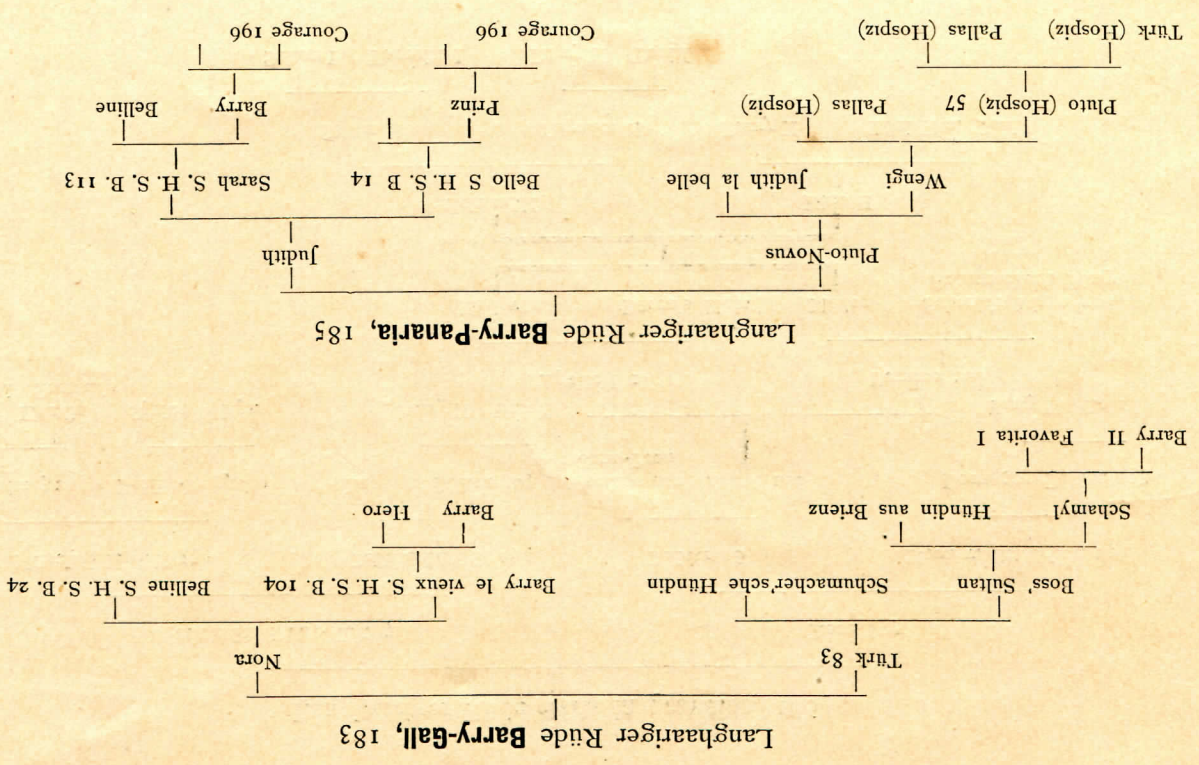 Langhaariger Rüde Barry-Gall, 183
Türk 83 Nora
Boss' Sultan Schumacher'sche Hündin Barry le vieux S. H. S. B. 104 Belline S. H. S. B. 24
Schamyl Hündin aus Brienz Barry Hero
Barry II Favorita I
Langhaariger Rüde Barry-Panaria, 185
Pluto-Novus Judith
Wengi Judith la belle Bello S H. S. B 14 Sarah S. H. S. B. 113
Pluto (Hospiz) 57 Pallas (Hospiz) Prinz Barry Belline
Türk (Hospiz) Pallas (Hospiz) Courage 196 Courage 196